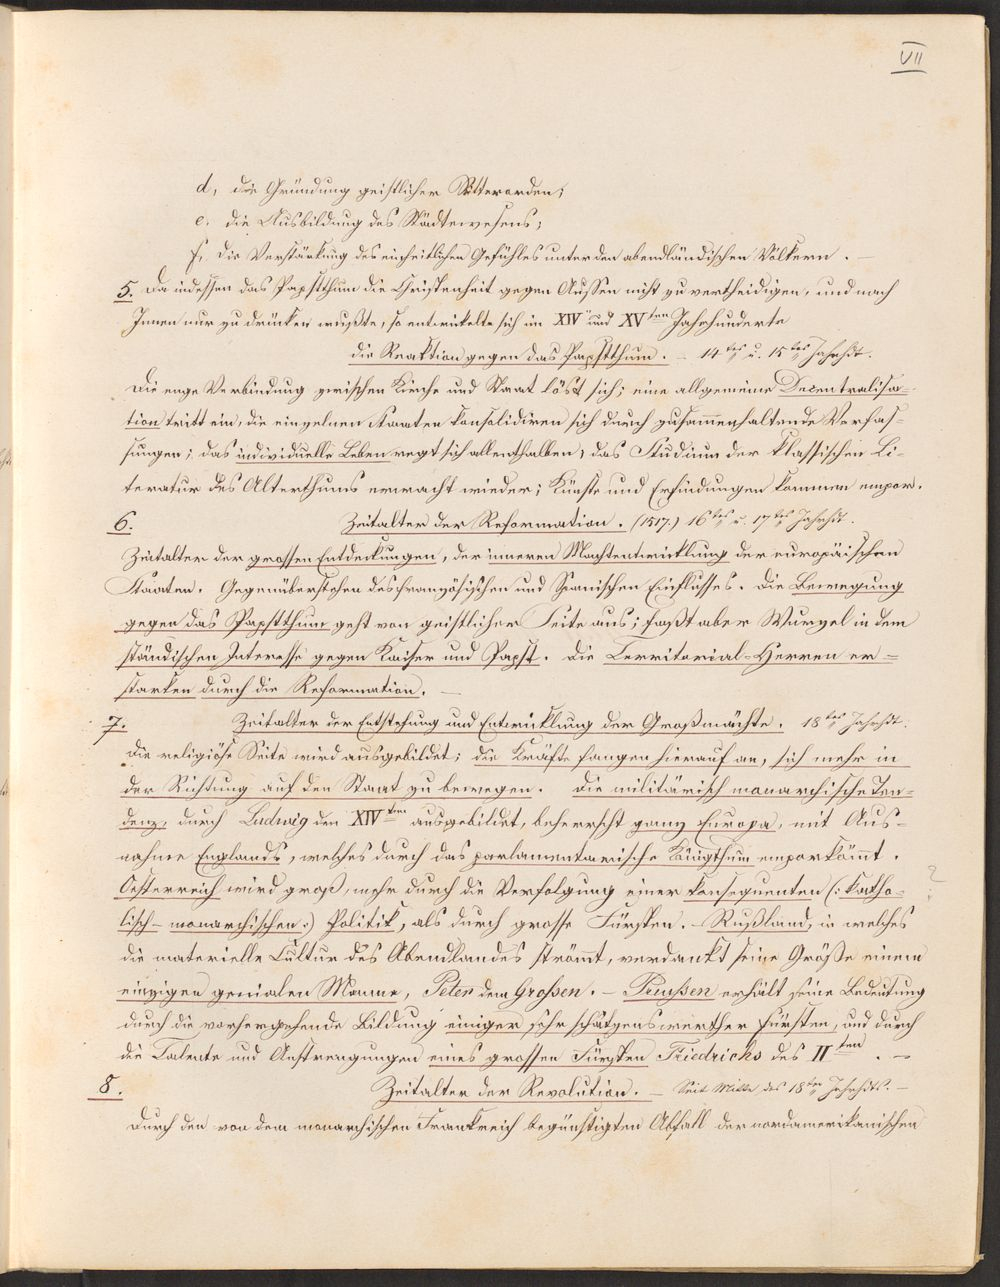 VII
d, die Gründung geistlicher Ritterorden;
e. die Ausbildung des Städtewesens;
f, die Verstärkung des einheitlichen Gefühles unter den abendländischen Völkern. —
5. Da indessen das Papstthum die Christenheit gegen Aussen nicht zu vertheidigen, und nach
Innen nur zu drücken wußte, so entwickelte sich im XIV und XVten Jahrhunderte
die Reaktion gegen das Papstthum. — 14tes u. 15tes Jahrhdt.
Die enge Verbindung zwischen Kirche und Staat löst sich; eine allgemeine Decentralisa=
tion tritt ein, die einzelnen Staaten konsolidiren sich durch zusammenhaltende Verfas=
sungen; das individuelle Leben regt sich allenthalben, das Studium der klassischen Li=
teratur des Alterthums erwacht wieder; Künste und Erfindungen kommen empor.
6. Zeitalter der Reformation. (1517.) 16tes u. 17tes Jahrhdt.
Zeitalter der grossen Entdeckungen, der inneren Machtentwicklung der europäischen
Staaten. Gegenüberstehen des französischen und Spanischen Einflusses. Die Bewegung
gegen das Papstthum geht von geistlicher Seite aus; faßt aber Wurzel in dem
ständischen Interesse gegen Kaiser und Papst. Die Territorial-Herren er=
starken durch die Reformation. —
7. Zeitalter der Entstehung und Entwicklung der Großmächte. 18tes Jahrhdt.
Die religiöse Seite wird ausgebildet; die Kräfte fangen hierauf an, sich mehr in
der Richtung auf den Staat zu bewegen. Die militärisch monarchische Ten=
denz, durch Ludwig den XIVten ausgebildet, beherrscht ganz Europa, mit Aus=
nahme Englands, welches durch das parlamentarische Königthum emporkömmt.
Oesterreich wird groß, mehr durch die Verfolgung einer konsequenten (: katho=
lisch-monarchischen :) Politik, als durch grosse Fürsten. — Rußland, in welches
die materielle Cultur des Abendlandes strömt, verdankt seine Größe einem
einzigen genialen Manne, Peter dem Grossen. — Preussen erhält seine Bedeutung
durch die vorhergehende Bildung einiger sehr schätzenswerther Fürsten, und durch
die Talente und Anstrengungen eines grossen Fürsten Friedrichs des IIten. —
8. Zeitalter der Revolution. — Seit Mitte des 18ten Jahrhdts. —
Durch den von dem monarchischen Frankreich begünstigten Abfall der nordamerikanischen